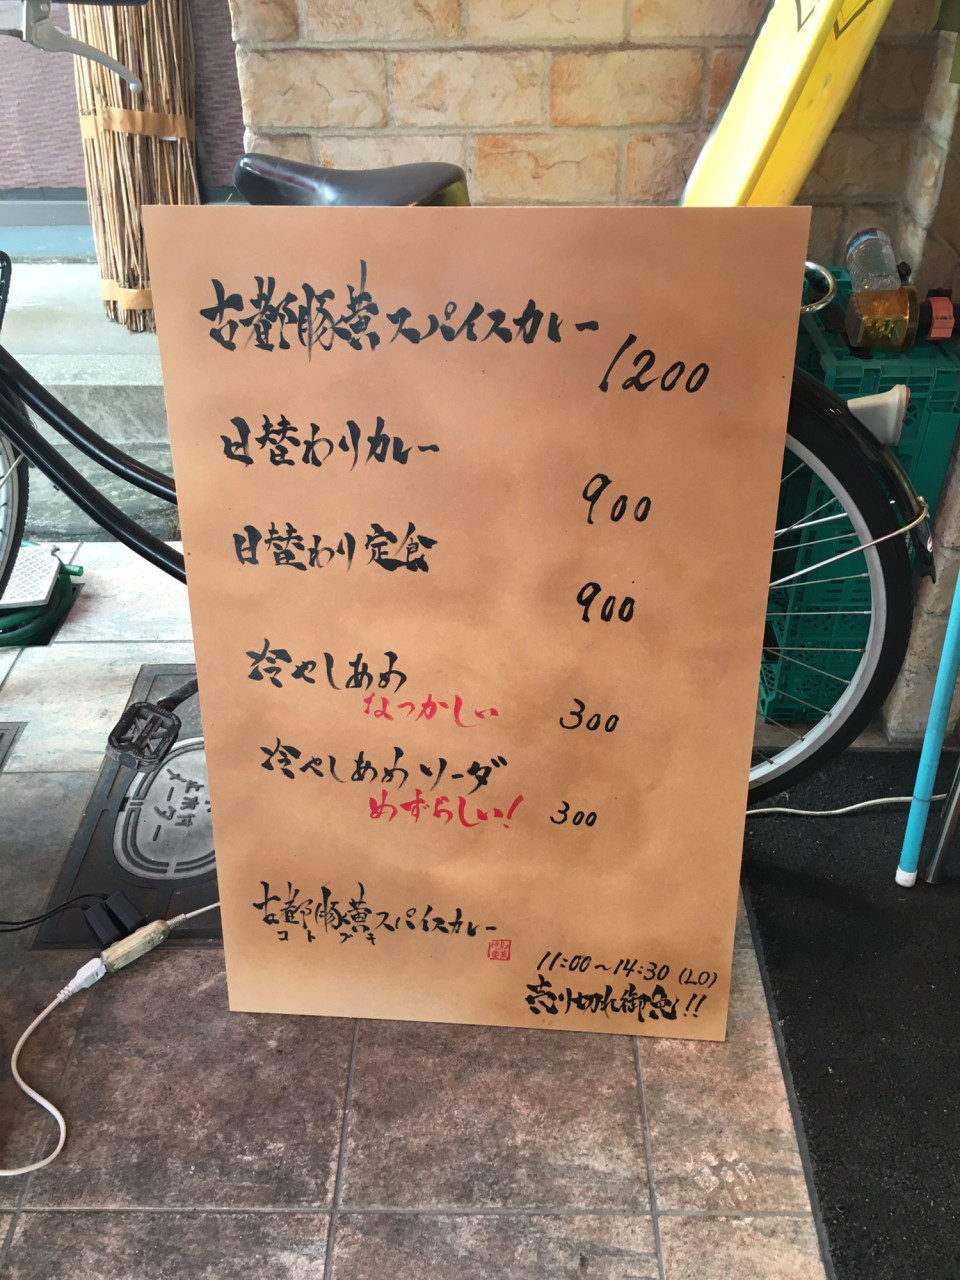 古都豚黄スパイスカレー
1200
日替わりカレー
900
日替わり定食
900
冷やしあめ
なつかしい 300
冷やしあめソーダ
めずらしい! 300
古都豚黄スパイスカレー
コトブキ
11:00〜14:30 (LO)
売り切れ御免!!
メーター